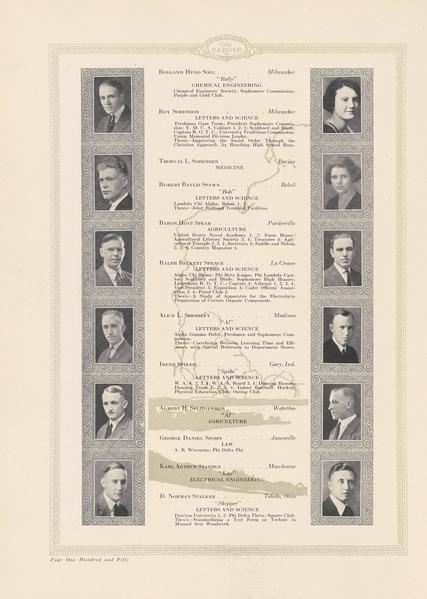 The
BADGER
ROLLAND HUGO SOLL Milwaukee
"Rolly"
CHEMICAL ENGINEERING
Chemical Engineers' Society; Sophomore Commission;
Purple and Gold Club.
ROY SORENSON Milwaukee
LETTERS AND SCIENCE
Freshman Gym Team; President Sophomore Commis-
sion; Y. M. C. A. Cabinet 1, 2, 4; Scabbard and Blade;
Captain R. O. T. C.; University Traditions Commission;
Union Memorial Division Leader.
Thesis—Improving the Social Order Through the
Christian Approach, by Reaching High School Boys.
THORVAL L. SORENSEN Racine
MEDICINE
ROBERT BAYLIS SPAWN Beloit
"Bob"
LETTERS AND SCIENCE
Lambda Chi Alpha; Beloit 1, 2.
Thesis—Joint Railroad Terminal Facilities.
BYRON HOYT SPEAR Pardeeville
AGRICULTURE
United States Naval Academy 1, 2; Farm House;
Agricultural Literary Society 3, 4, Treasurer 4; Agri-
cultural Triangle 2, 3, 4, Secretary 4; Saddle and Sirloin
2, 3, 4; Country Magazine 4.
RALPH BECKETT SPENCE La Crosse
LETTERS AND SCIENCE
Alpha Chi Sigma; Phi Beta Kappa; Phi Lambda Upsi-
lon; Scabbard and Blade; Sophomore High Honors;
Lieutenant R. O. T. C.; Captain 4; Athenae 1, 2, 3, 4,
Vice-President 3; Exposition 3; Cadet Officers' Associ-
ation 3, 4; Pistol Club 3.
Thesis—A Study of Apparatus for the Electrolytic
Preparation of Certain Organic Compounds.
ALICE L. Madison
"Al"
LETTERS AND SCIENCE
Alpha Gamma Delta; Freshmen and Sophomore Com-
mission.
Thesis—Correlation Between Learning Time and Effi-
ciency with Special Reference to Department Stores.
IRENE SPIKER Gary, Ind.
"Spike"
LETTERS AND SCIENCE
W. A. A. 2, 3, 4; W. A. A. Board 3, 4; Dancing Honors;
Dancing Team 1, 2, 3, 4; Indoor Baseball; Hockey;
Physical Education Club; Outing Club.
ALBERT H. SPLITGERBER Waterloo
"Al"
AGRICULTURE
GEORGE DANIEL SPOHN Janesville
LAW
A. B. Wisconsin; Phi Delta Phi.
KARL ARTHUR STAEHLE Manitowoc
ELECTRICAL ENGINEERING
D. NORMAN STALKER Toledo, Ohio
"Skipper"
LETTERS AND SCIENCE
Denison University 1, 2; Phi Delta Theta; Square Club.
Thesis—Standardizing a Test Form or Technic in
Manual Arts Woodwork.
Page One Hundred and Fifty